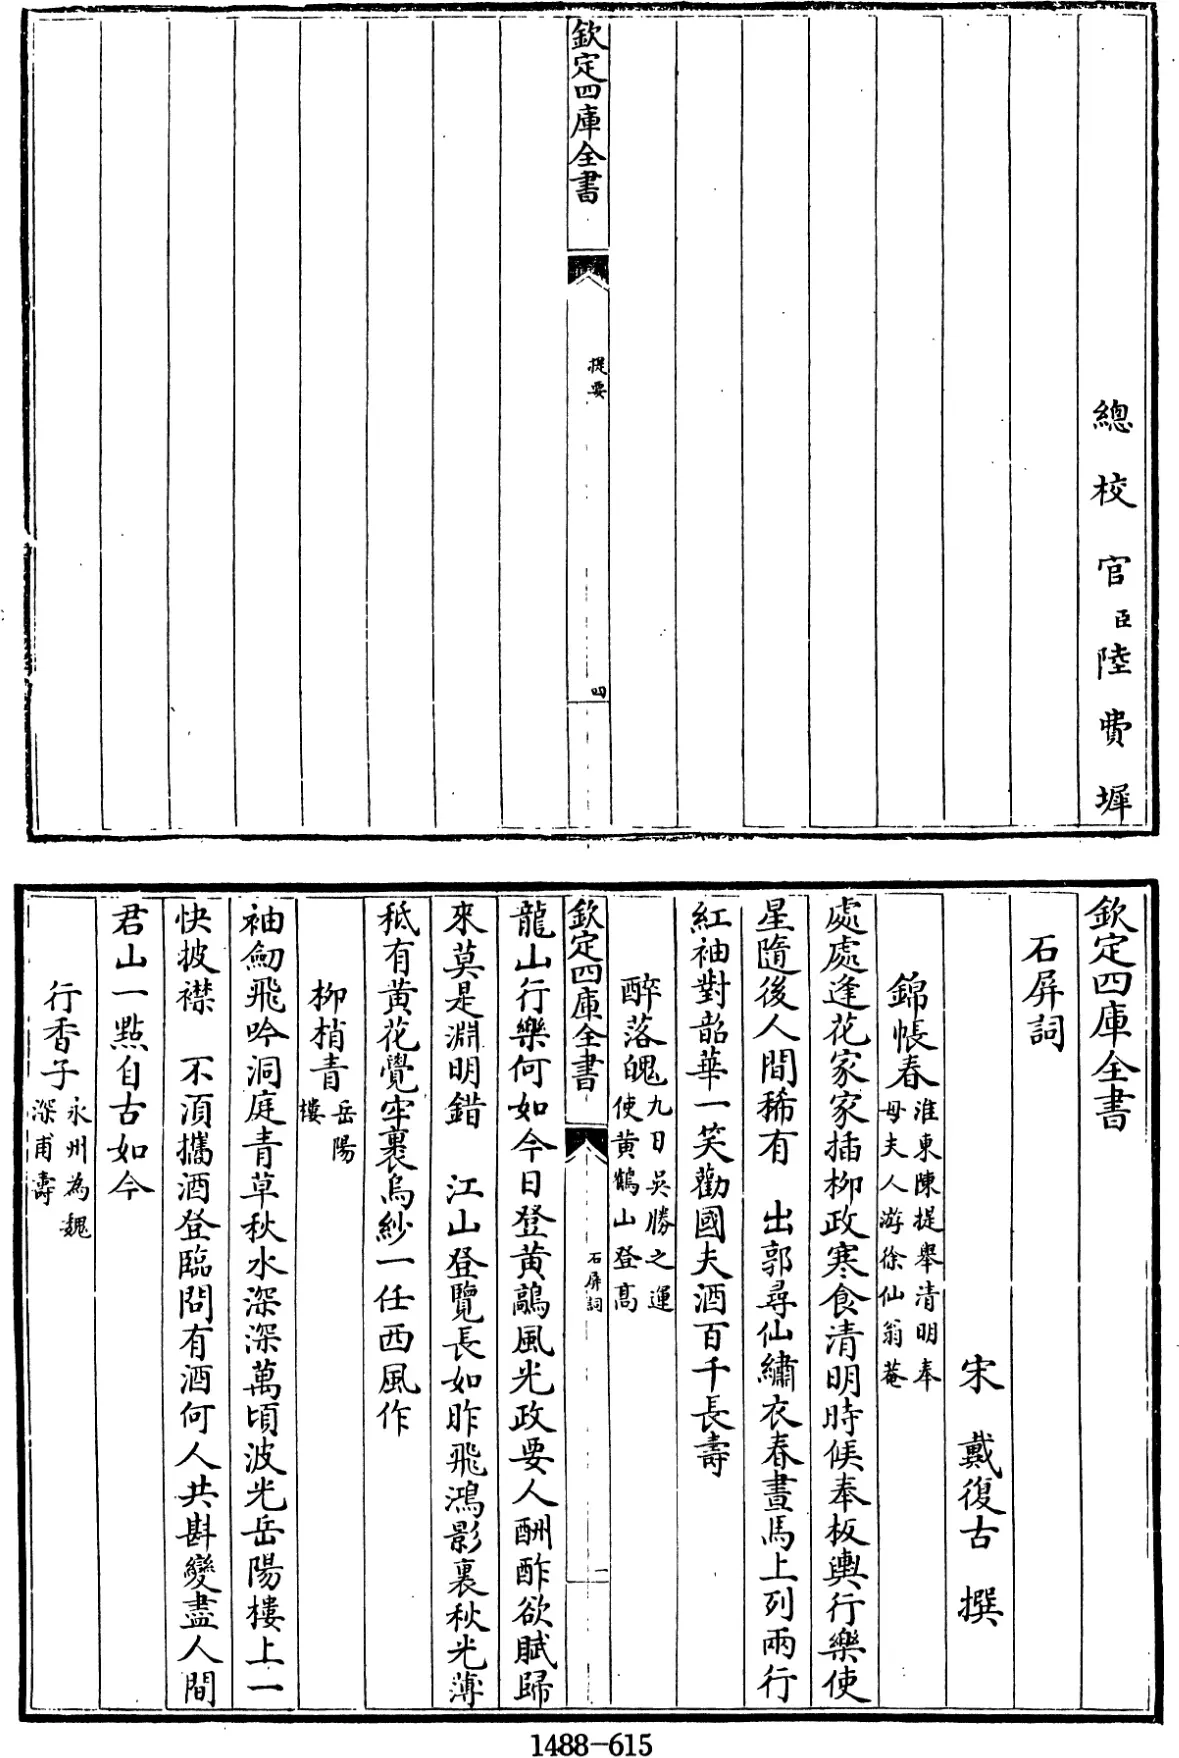 總校官臣陸費墀
欽定四庫全書
提要
四
欽定四庫全書
石屏詞
宋 戴復古 撰
錦帳春淮東陳提舉清明奉
母夫人游徐仙翁菴
處處逢花家家插柳政寒食清明時候奉板輿行樂使
星隨後人間稀有 出郭尋仙繡衣春晝馬上列兩行
紅袖對韶華一笑勸國夫酒百千長壽
醉落魄九日吳勝之運
使黄鶴山登高
欽定四庫全書
石屏詞
一
龍山行樂何如今日登黄鶴風光政要人酬酢欲賦歸
來莫是淵明錯 江山登覽長如昨飛鴻影裏秋光薄
秖有黄花覺牢裹烏紗一任西風作
柳梢青岳陽
樓
袖劒飛吟洞庭青草秋水深深萬頃波光岳陽樓上一
快披襟 不湏攜酒登臨問有酒何人共斟變盡人間
君山一點自古如今
行香子永州為魏
深甫壽
1488-615